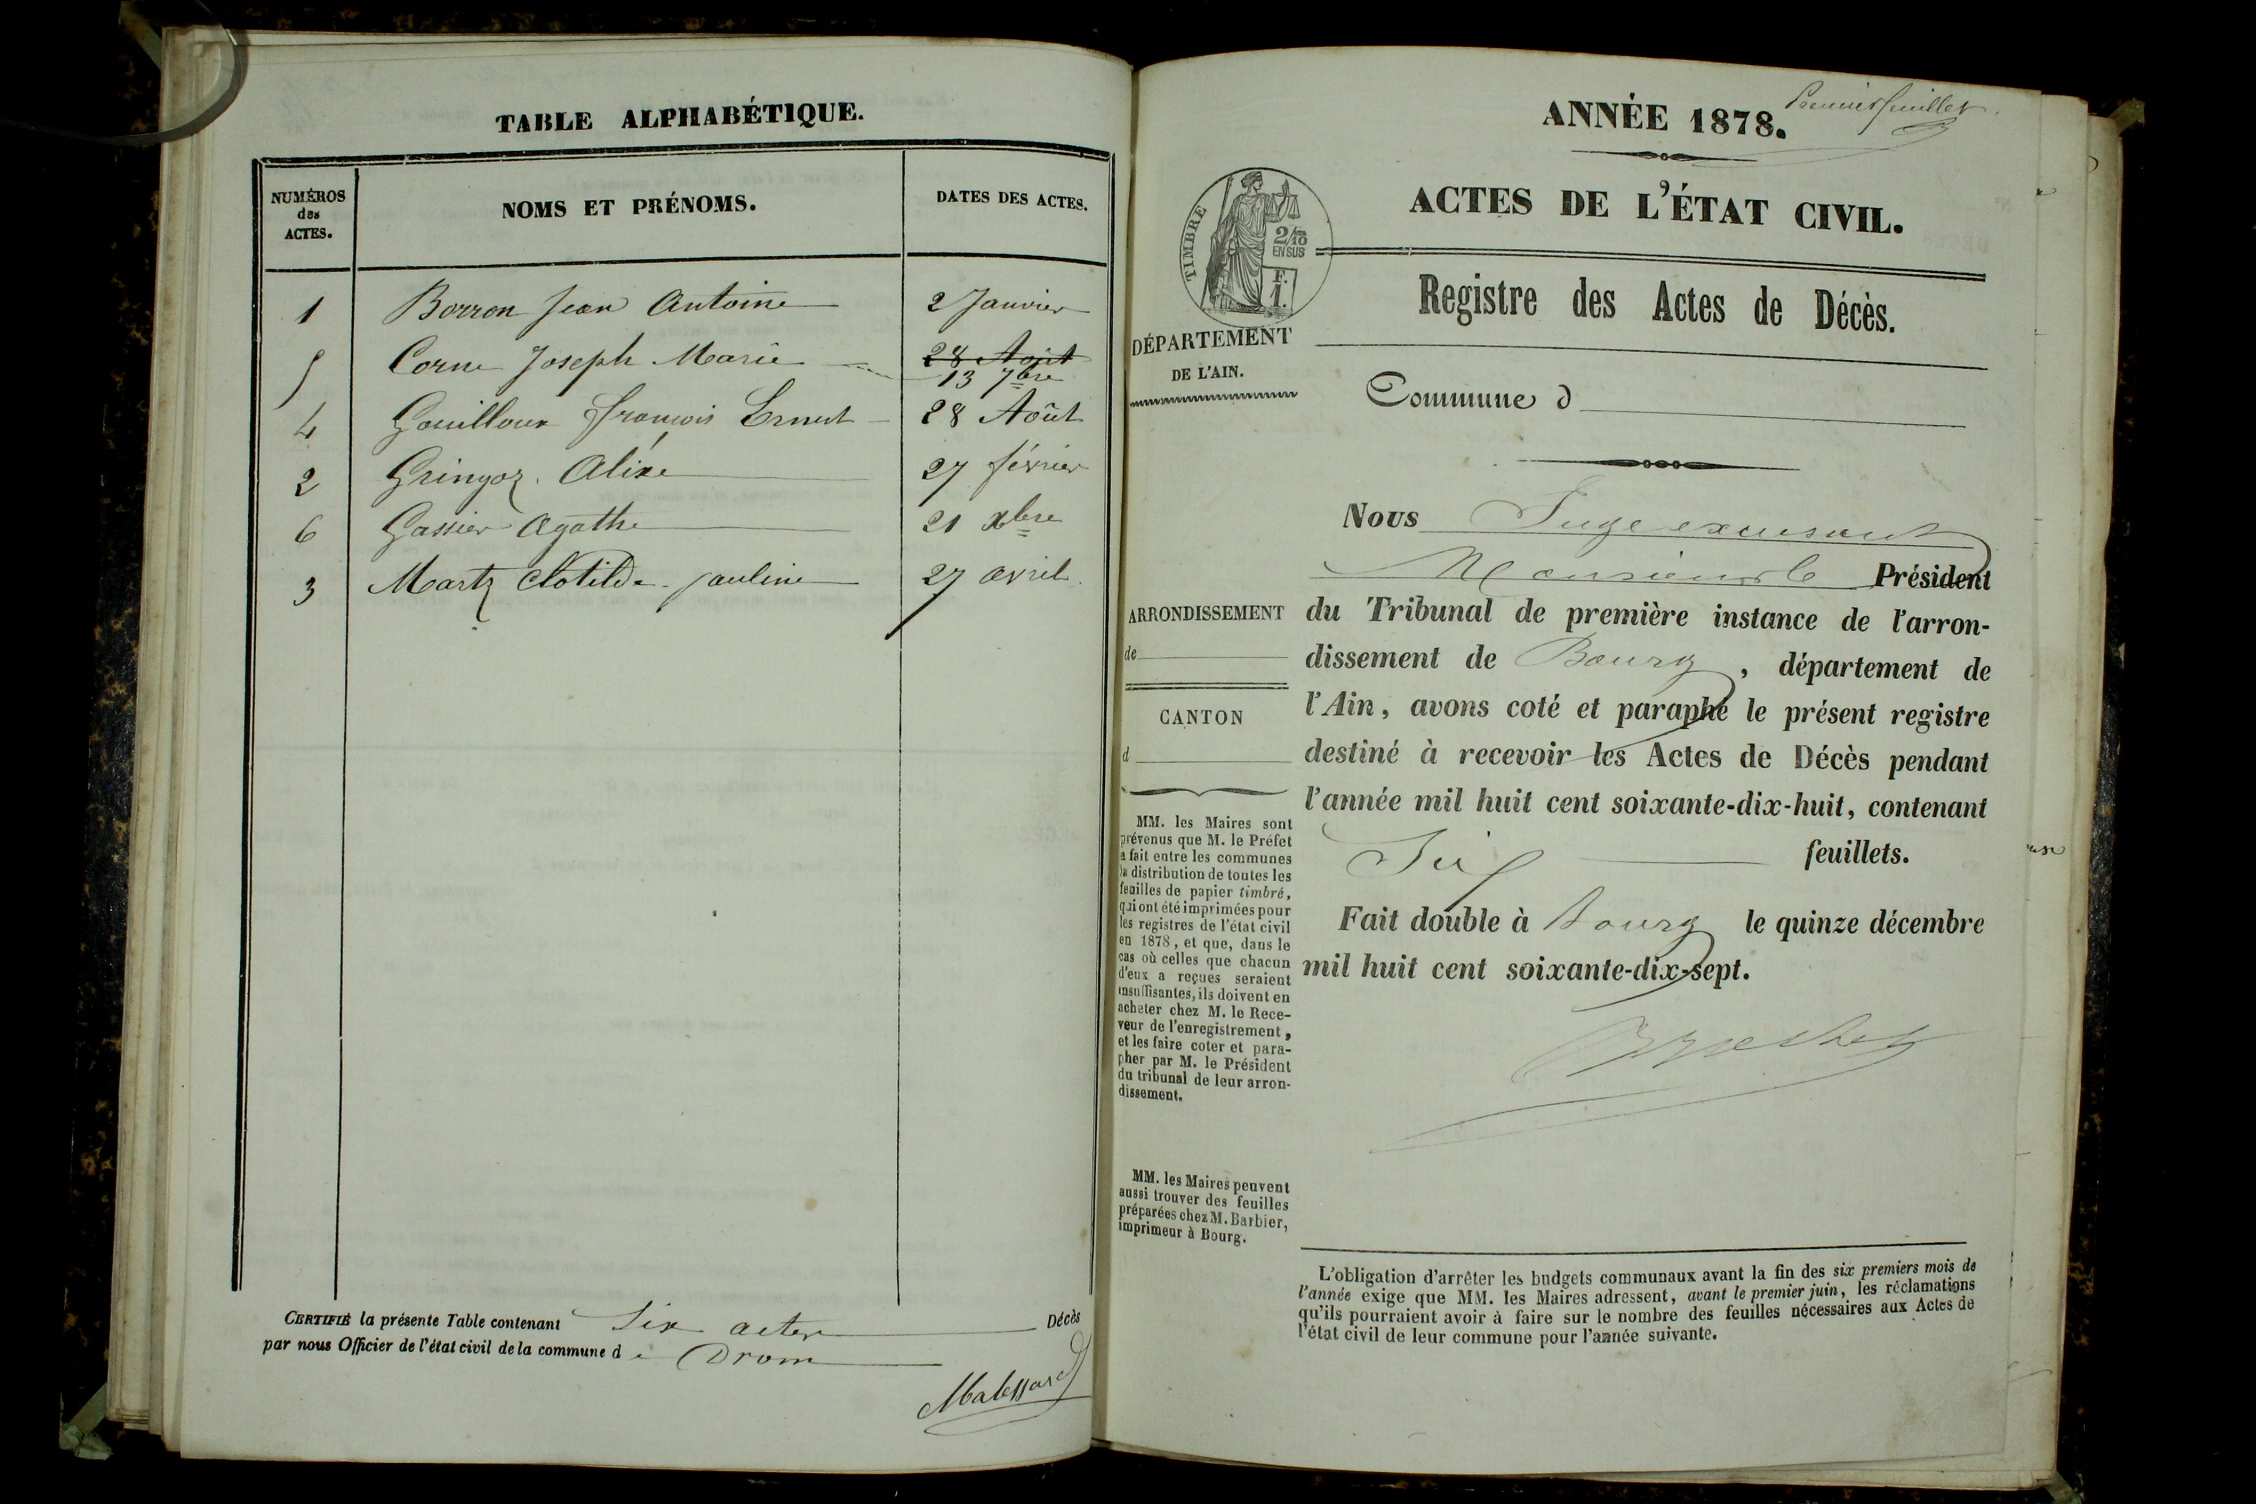 TABLE ALPHABÉTIQUE.
NUMÉROS des ACTES. NOMS ET PRÉNOMS. DATES DES ACTES.
1 Borron Jean Antoine 2 Janvier
5 Corne Joseph Marie 28 Août
13 7bre
4 Gouilloux François Ernest 28 Août
2 Gringoz Alixe 27 février
6 Gassier Agathe 21 Xbre
3 Martz Clotilde pauline 27 avril
CERTIFIÉ la présente Table contenant Six actes Décès
par nous Officier de l'état civil de la commune de Drom
ANNÉE 1878.
Premier feuillet
ACTES DE L'ÉTAT CIVIL.
TIMBRE
2/10
EN SUS
F.
1.
Registre des Actes de Décès.
DÉPARTEMENT
DE L'AIN.
Commune d
ARRONDISSEMENT
de
CANTON
d
MM. les Maires sont
prévenus que M. le Préfet
a fait entre les communes
la distribution de toutes les
feuilles de papier timbré,
qui ont été imprimées pour
les registres de l'état civil
en 1878, et que, dans le
cas où celles que chacun
d'eux a reçues seraient
insuffisantes, ils doivent en
acheter chez M. le Rece-
veur de l'enregistrement,
et les faire coter et para-
pher par M. le Président
du tribunal de leur arron-
dissement.
MM. les Maires peuvent
aussi trouver des feuilles
préparées chez M. Barbier,
imprimeur à Bourg.
Nous Juge excusant
Monsieur le Président
du Tribunal de première instance de l'arron-
dissement de Bourg, département de
l'Ain, avons coté et paraphé le présent registre
destiné à recevoir les Actes de Décès pendant
l'année mil huit cent soixante-dix-huit, contenant
Six feuillets.
Fait double à Bourg le quinze décembre
mil huit cent soixante-dix-sept.
L'obligation d'arrêter les budgets communaux avant la fin des six premiers mois de
l'année exige que MM. les Maires adressent, avant le premier juin, les réclamations
qu'ils pourraient avoir à faire sur le nombre des feuilles nécessaires aux Actes de
l'état civil de leur commune pour l'année suivante.